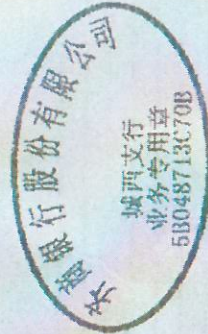 银行股份有限公司
城西支行
业务专用章
5B048713C70B